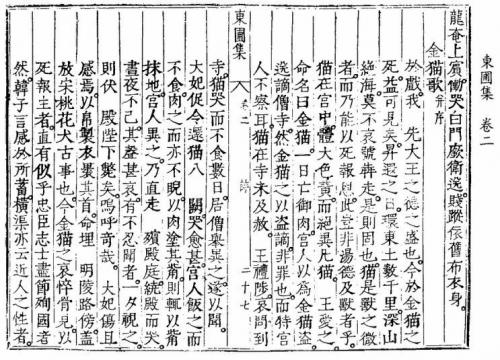 東圃集 卷二
龍奄上賓慟哭白門廠衛逸賤蹤依舊布衣身
金猫歌 幷序
於戲我 先大王之德之盛也今於金猫之
死益可見矣昇遐之日環東土數千里深山
絶海莫不哀號奔走是則固也猫是獸之微
者而乃能以死報恩此豈非湯德及獸者乎
猫在宮中體大色黃而絶異凡猫 王愛之
命名曰金猫一日亡御肉宮人以爲金猫盜
遂謫僧寺然金猫之以盜謫非罪也而特宮
人不察耳猫在寺未及赦 王禮陟哀問到
東圃集 卷二 詩 二十七
寺猫哭而不食累日居僧舉異之遂以聞
大妃促令還猫入 闕哭愈甚宮人飯之而
不食肉之而亦不睨以肉塗其觜則輒以觜
抹地宮人異之乃直走 殯殿庭繞殿而哭
晝夜不已其聲甚哀有不忍聞者一夕視之
則伏 殿陛下斃矣嗚呼奇哉 大妃傷且
感焉以帛製衣裹其首命埋 明陵路傍盖
放宋桃花犬古事也今金猫之哀悴胥見以
死報主者直有似乎忠臣志士盡節殉國者
然韓子言感於所蓄橫渠亦云近人之性者